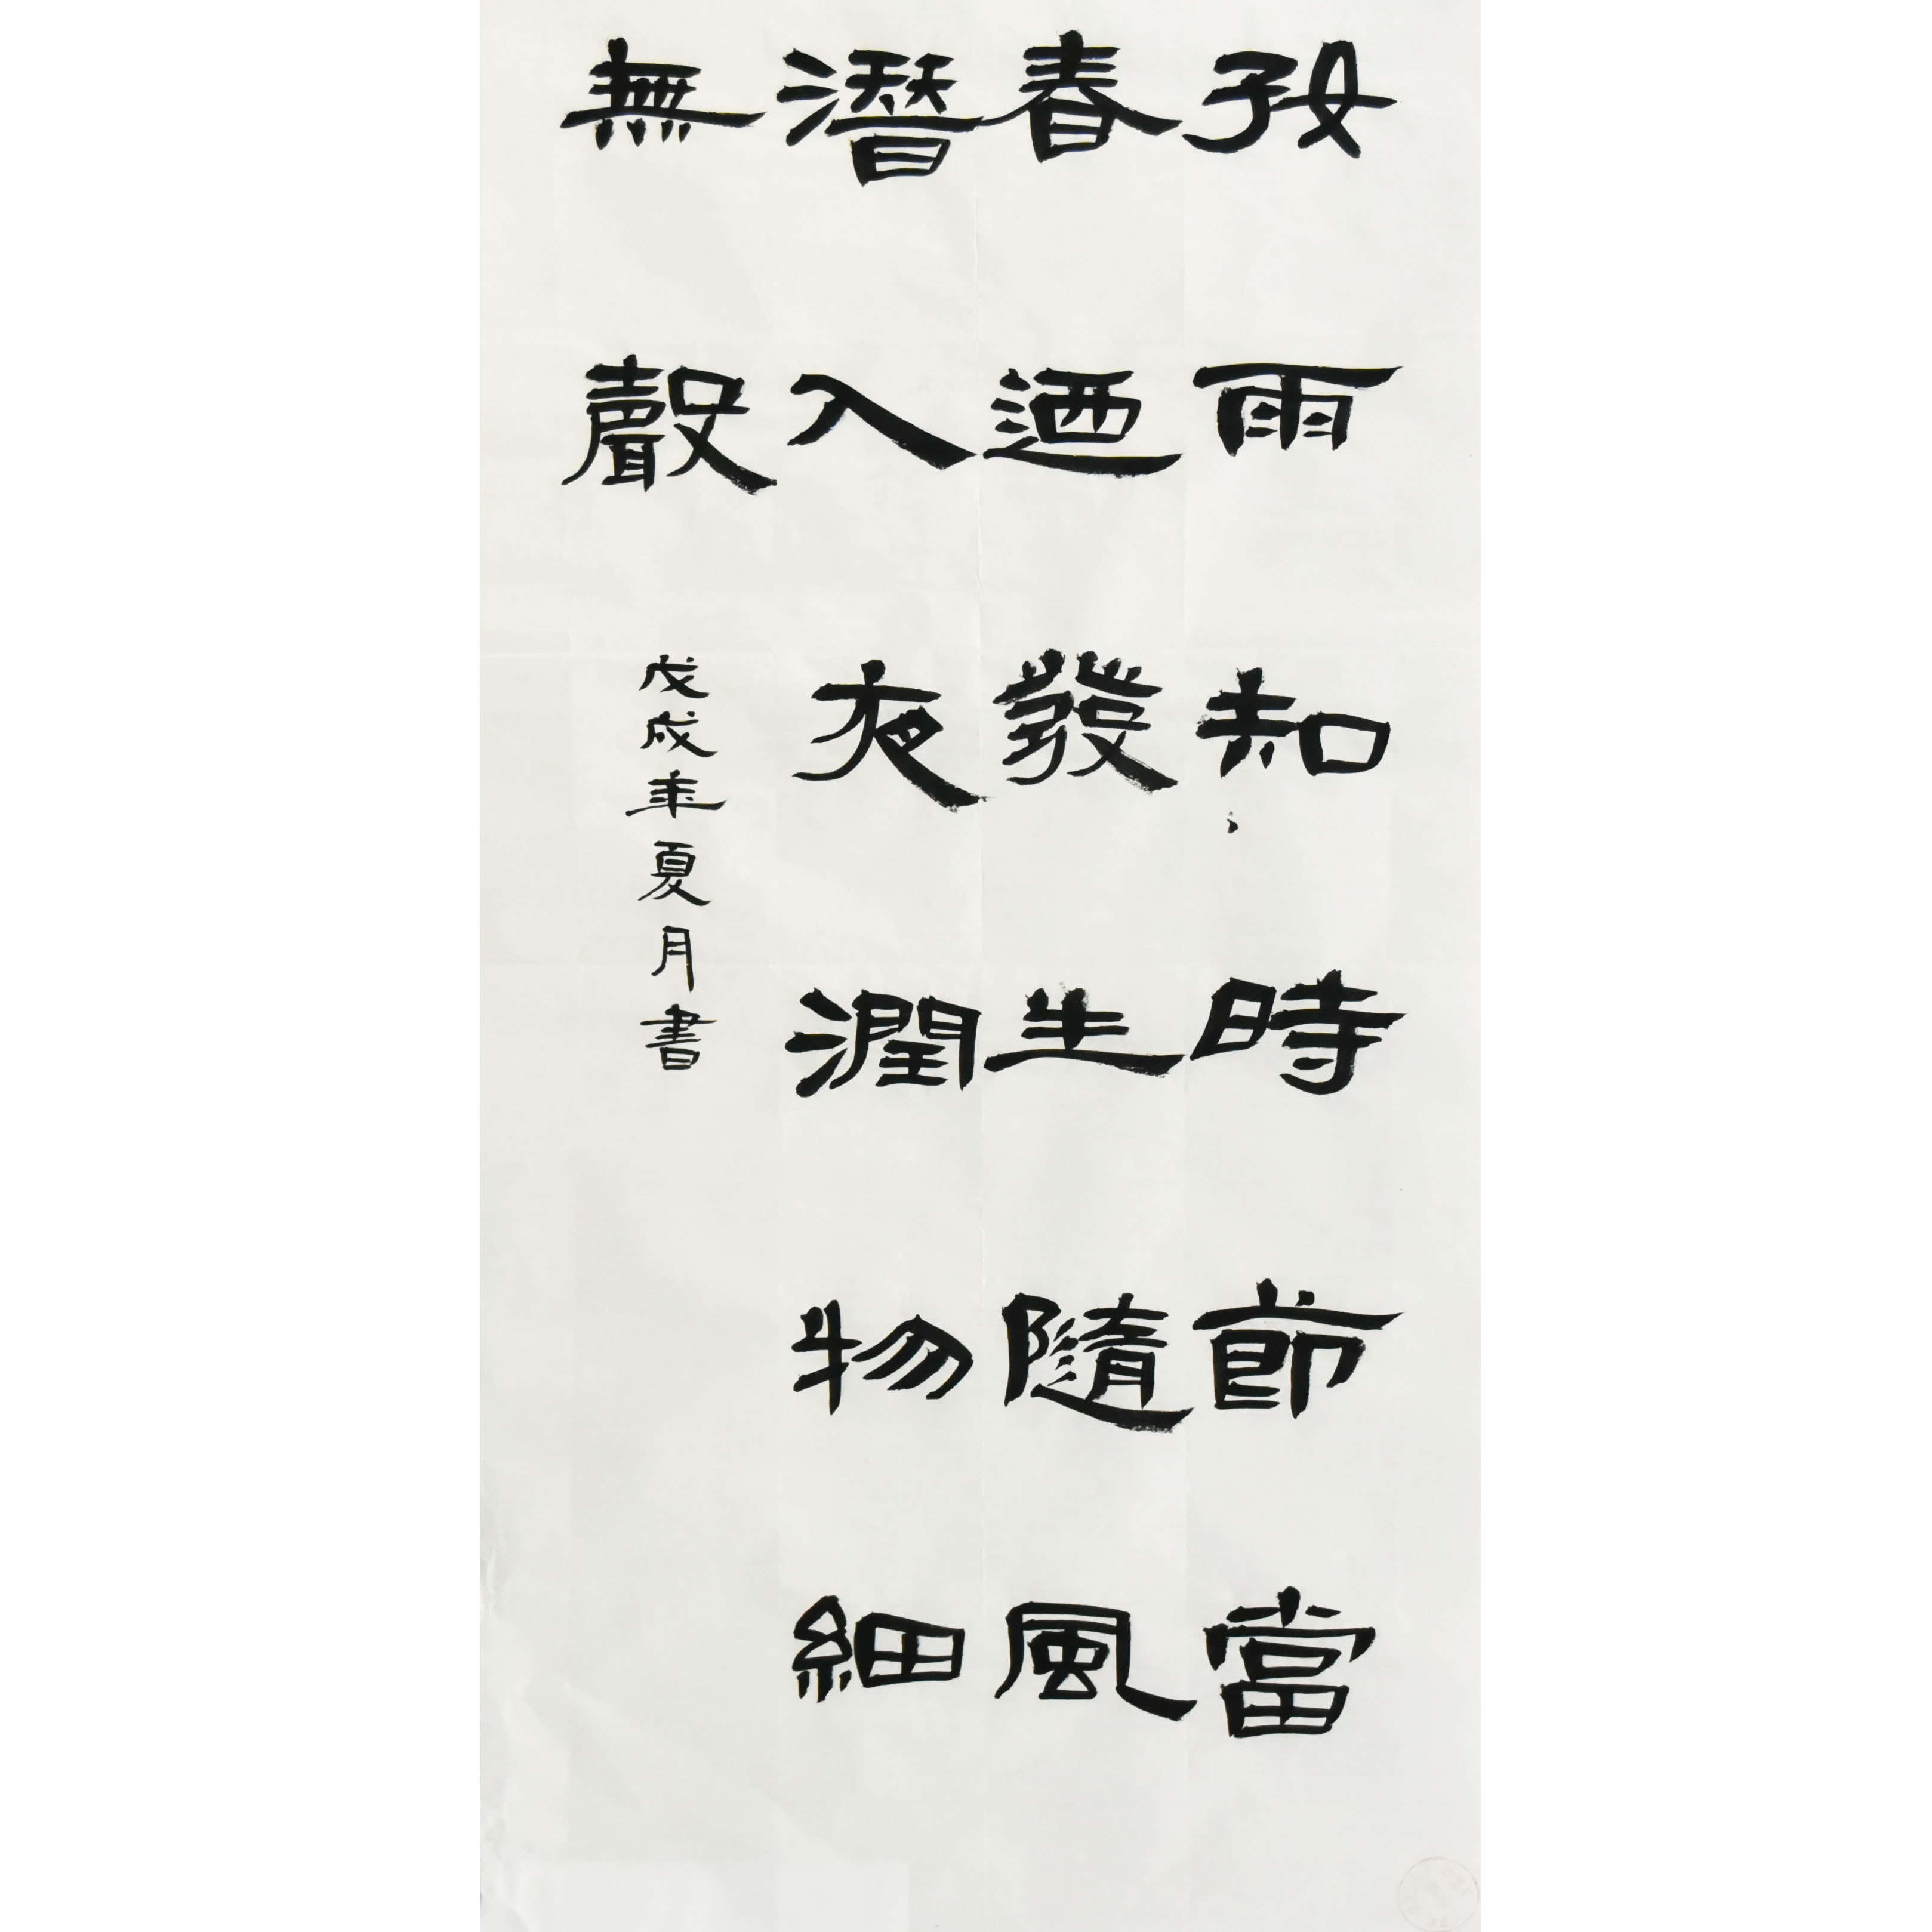 好雨知時節當
春迺發生隨風
潛入夜潤物細
無聲
戊戌年夏月書